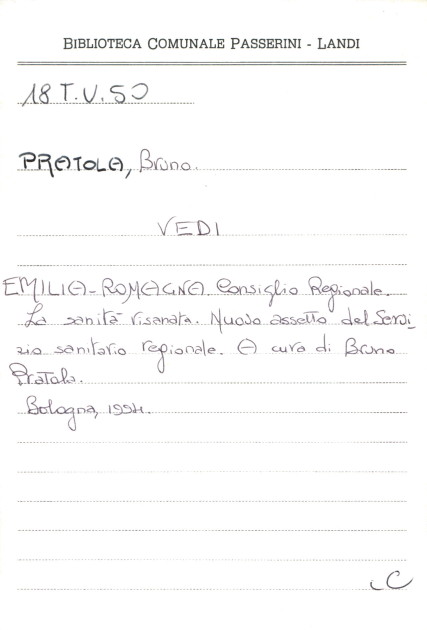 BIBLIOTECA COMUNALE PASSERINI - LANDI
18 T.V.50
PRATOLA, Bruno.
VEDI
EMILIA-ROMAGNA. Consiglio Regionale.
La sanità risanata. Nuovo assetto del Servi
zio sanitario regionale. A cura di Bruno
Pratola.
Bologna, 1994.